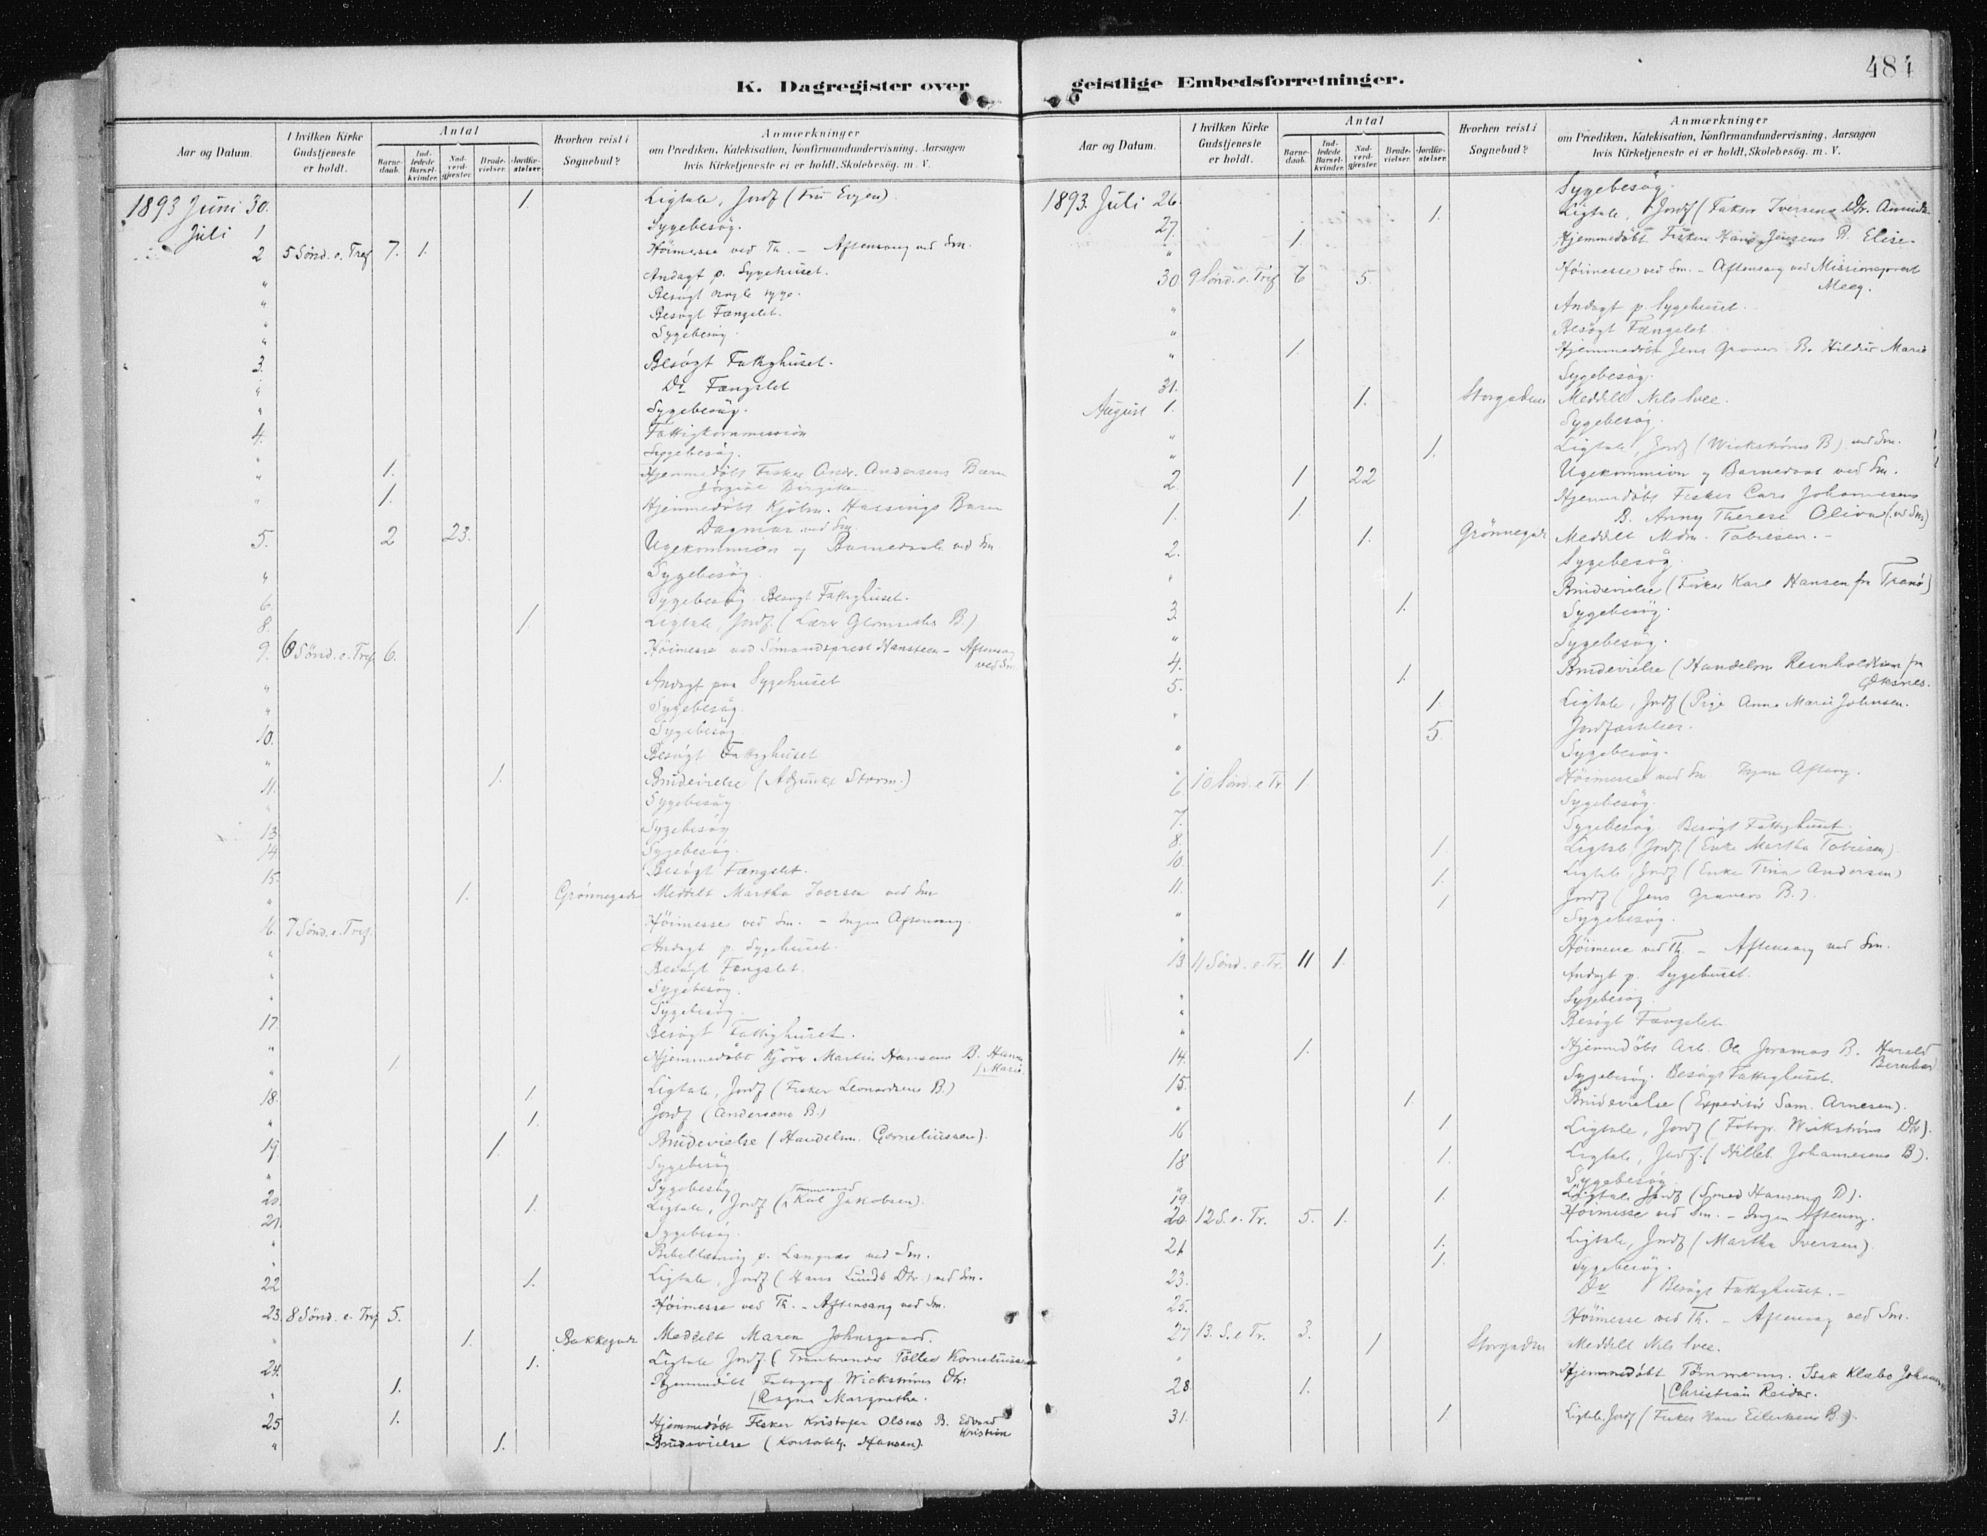 484
K. Dagregister over geistlige Embedsforretninger.
Aar og Datum.
I hvilken Kirke Gudstjeneste er holdt.
Antal
Barnedaab.
Indledede Barselkvinder.
Nadverdgjester.
Brudevielser.
Jordfæstelser.
Hvorhen reist i Sognebud?
Anmærkninger
om Prædiken, Katekisation, Konfirmandundervisning, Aarsagen
hvis Kirketjeneste ei er holdt, Skolebesøg. m. V.
1893 Juni 30. 1. Ligtale, Jordf (Fru Evjen).
Juli 1 Sygebesøg.
2 5 Sønd. e. Tref 7. 1. Høimesse ved Th. – Aftensang ved Sm.
" Andagt p. Sygehuset.
" Besøgt nogle syge.
" Besøgt Fængslet.
" Sygebesøg
3. Besøgt Fattighuset.
" Do Fængslet
" Sygebesøg.
4. Fattigkommission
" Sygebesøg.
" 1. Hjemmedøbt Fisker Andr. Andersens Barn
" 1. Hjemmedøbt Kjøbm. Hassings Barn
Dagmar ved Sm
5. 2 23. Ugekommunion og Barnedaab ved Sm
" Sygebesøg
6. Sygebesøg. Besøgt Fattighuset.
8. 1 Ligtale, Jordf. (
9. 6 Sønd. e. Tref. 6. Høimesse ved Sømandsprest Hansteen – Aftensang
ved Sm.
" Andagt paa Sygehuset
" Sygebesøg.
10. Sygebesøg
" Besøgt Fattighuset
11. 1. Brudevielse (Adjunkt Storm.)
" Sygebesøg
13. Sygebesøg
14 Sygebesøg.
15. Besøgt Fængslet.
" 1. Grønnegade Meddelt Martha Iversen ved Sm
16. 7 Sønd. e. Tref. Høimesse ved Sm. – Ingen Aftensang.
" Andagt p. Sygehuset.
" Besøgt Fængslet.
" Sygebesøg.
" Sygebesøg.
17 Besøgt Fattighuset.
" 1. Hjemmedøbt Martin Hansens B. Hanna
Marie.
18. 1. Ligtale, Jordf (Fisker Leonardsens B)
" 1. Jordf (Andersens B.)
19. 1 Brudevielse (Handelsm. Corneliussen).
" Sygebesøg
" Sygebesøg
20. 1. Ligtale, Jordf (Karl Jakobsen).
21. Sygebesøg.
" Bibellæsning p. Langnæs ved Sm.
22 1. Ligtale, Jordf (Hans Lunds Dtr.) ved Sm.
23. 8 Sønd. e. Tref 5. Høimesse ved Th. – Aftensang ved Sm.
" 1. Bakkegade Meddelt Maren Johnsgaard.
24. 1. Ligtale Jordf. (Tranbrænder Tollev Korneliussen
" 1. Hjemmedøbt Fotograf Wickstrøms Dtr.
Ragna Margrethe.
25 1. Hjemmedøbt Fisker Kristofer Olsens B. Edvard
Kristian
" 1. Brudevielse (Kontorbetj. Hansen).
Aar og Datum.
I hvilken Kirke Gudstjeneste er holdt.
Antal
Barnedaab.
Indledede Barselkvinder.
Nadverdgjester.
Brudevielser.
Jordfæstelser.
Hvorhen reist i Sognebud?
Anmærkninger
om Prædiken, Katekisation, Konfirmandundervisning, Aarsagen
hvis Kirketjeneste ei er holdt, Skolebesøg. m. V.
1893. Juli 26. Sygebesøg.
27. 1. Ligtale, Jordf (Fisker Iversens Dtr.
" 1. Hjemmedøbt Fisker Hans Jensens B. Elise.
30. 9 Sønd. e. Tref 6 5. Høimesse ved Sm. – Aftensang ved Missionsprest
Meeg.
" Andagt p Sygehuset.
" Besøgt Fængslet
" 1. Hjemmedøbt Jens Gravers B. Hildur Marie
31. Sygebesøg.
August 1. 1. Storgaden Meddelt Nils Svee.
" Sygebesøg.
" 1. Ligtale, Jordf (Wickstrøms B) ved Sm.
2. 1 22 Ugekommunion og Barnedaab ved Sm.
1. 1. Hjemmedøbt Fisker Carl Johannesens
B. Anny Therese Oliva (ved Sm)
2. 1. Grønnegade Meddelt Mdm. Tobiesen. –
" Sygebesøg.
3. 1. Brudevielse (Fisker Karl Hansen fra Tranø)
" Sygebesøg.
4. Sygebesøg.
5. 1. Brudevielse (Handelsm Reinholdtsen fra
Øksnes.
" 1 Ligtale, Jordf (Pige Anna Marie Johnsen.
" 5. Jordfæstelser.
" Sygebesøg.
6. 10 Sønd. e. Tr. 1. Høimesse ved Sm Ingen Aftensang.
7. Sygebesøg.
8. Sygebesøg Besøgt Fattighuset.
10. 1 Ligtale, Jordf. (Enke Martha Tobiesen)
11. 1. Ligtale, Jordf (Enke Tina Andersen)
" 1 Jordf (Jens Gravers B.).
" Sygebesøg.
13 11 Sønd. e. Tr. 11 1. Høimesse ved Th. – Aftensang ved Sm.
" Andagt p. Sygehuset.
" Sygebesøg.
" Besøgt Fængslet
14. 1. Hjemmedøbt Arb. Ole Joramos B. Harald
Bernhard
15. Sygebesøg. Besøgt Fattighuset.
" 1 Brudevielse (Expeditør Sam. Arnesen).
16 1 Ligtale, Jordf (Fotogr. Wickstrøms Dtr).
18 1. Ligtale, Jordf. (Johannesens B).
" Sygebesøg
19. 1. Ligtale Jordf (Smed Hansens D).
20. 12 S. e. Tr. 5. 1. Høimesse ved Sm. – Ingen Aftensang.
21 1. Ligtale, Jordf (Martha Iversen).
23. 1. Sygebesøg.
25. Do Besøgt Fattighuset. –
27 13. S. e Tr. 3. Høimesse ved Th. – Aftensang ved Sm.
" 1 Storgaden Meddelt Nils Svee.
28 1. Hjemmedøbt Tømmerm. Isak Klæbo Johansens
Christian Reidar.
31. 1 Ligtale, Jordf (Fisker Hans Eilertsens B.).